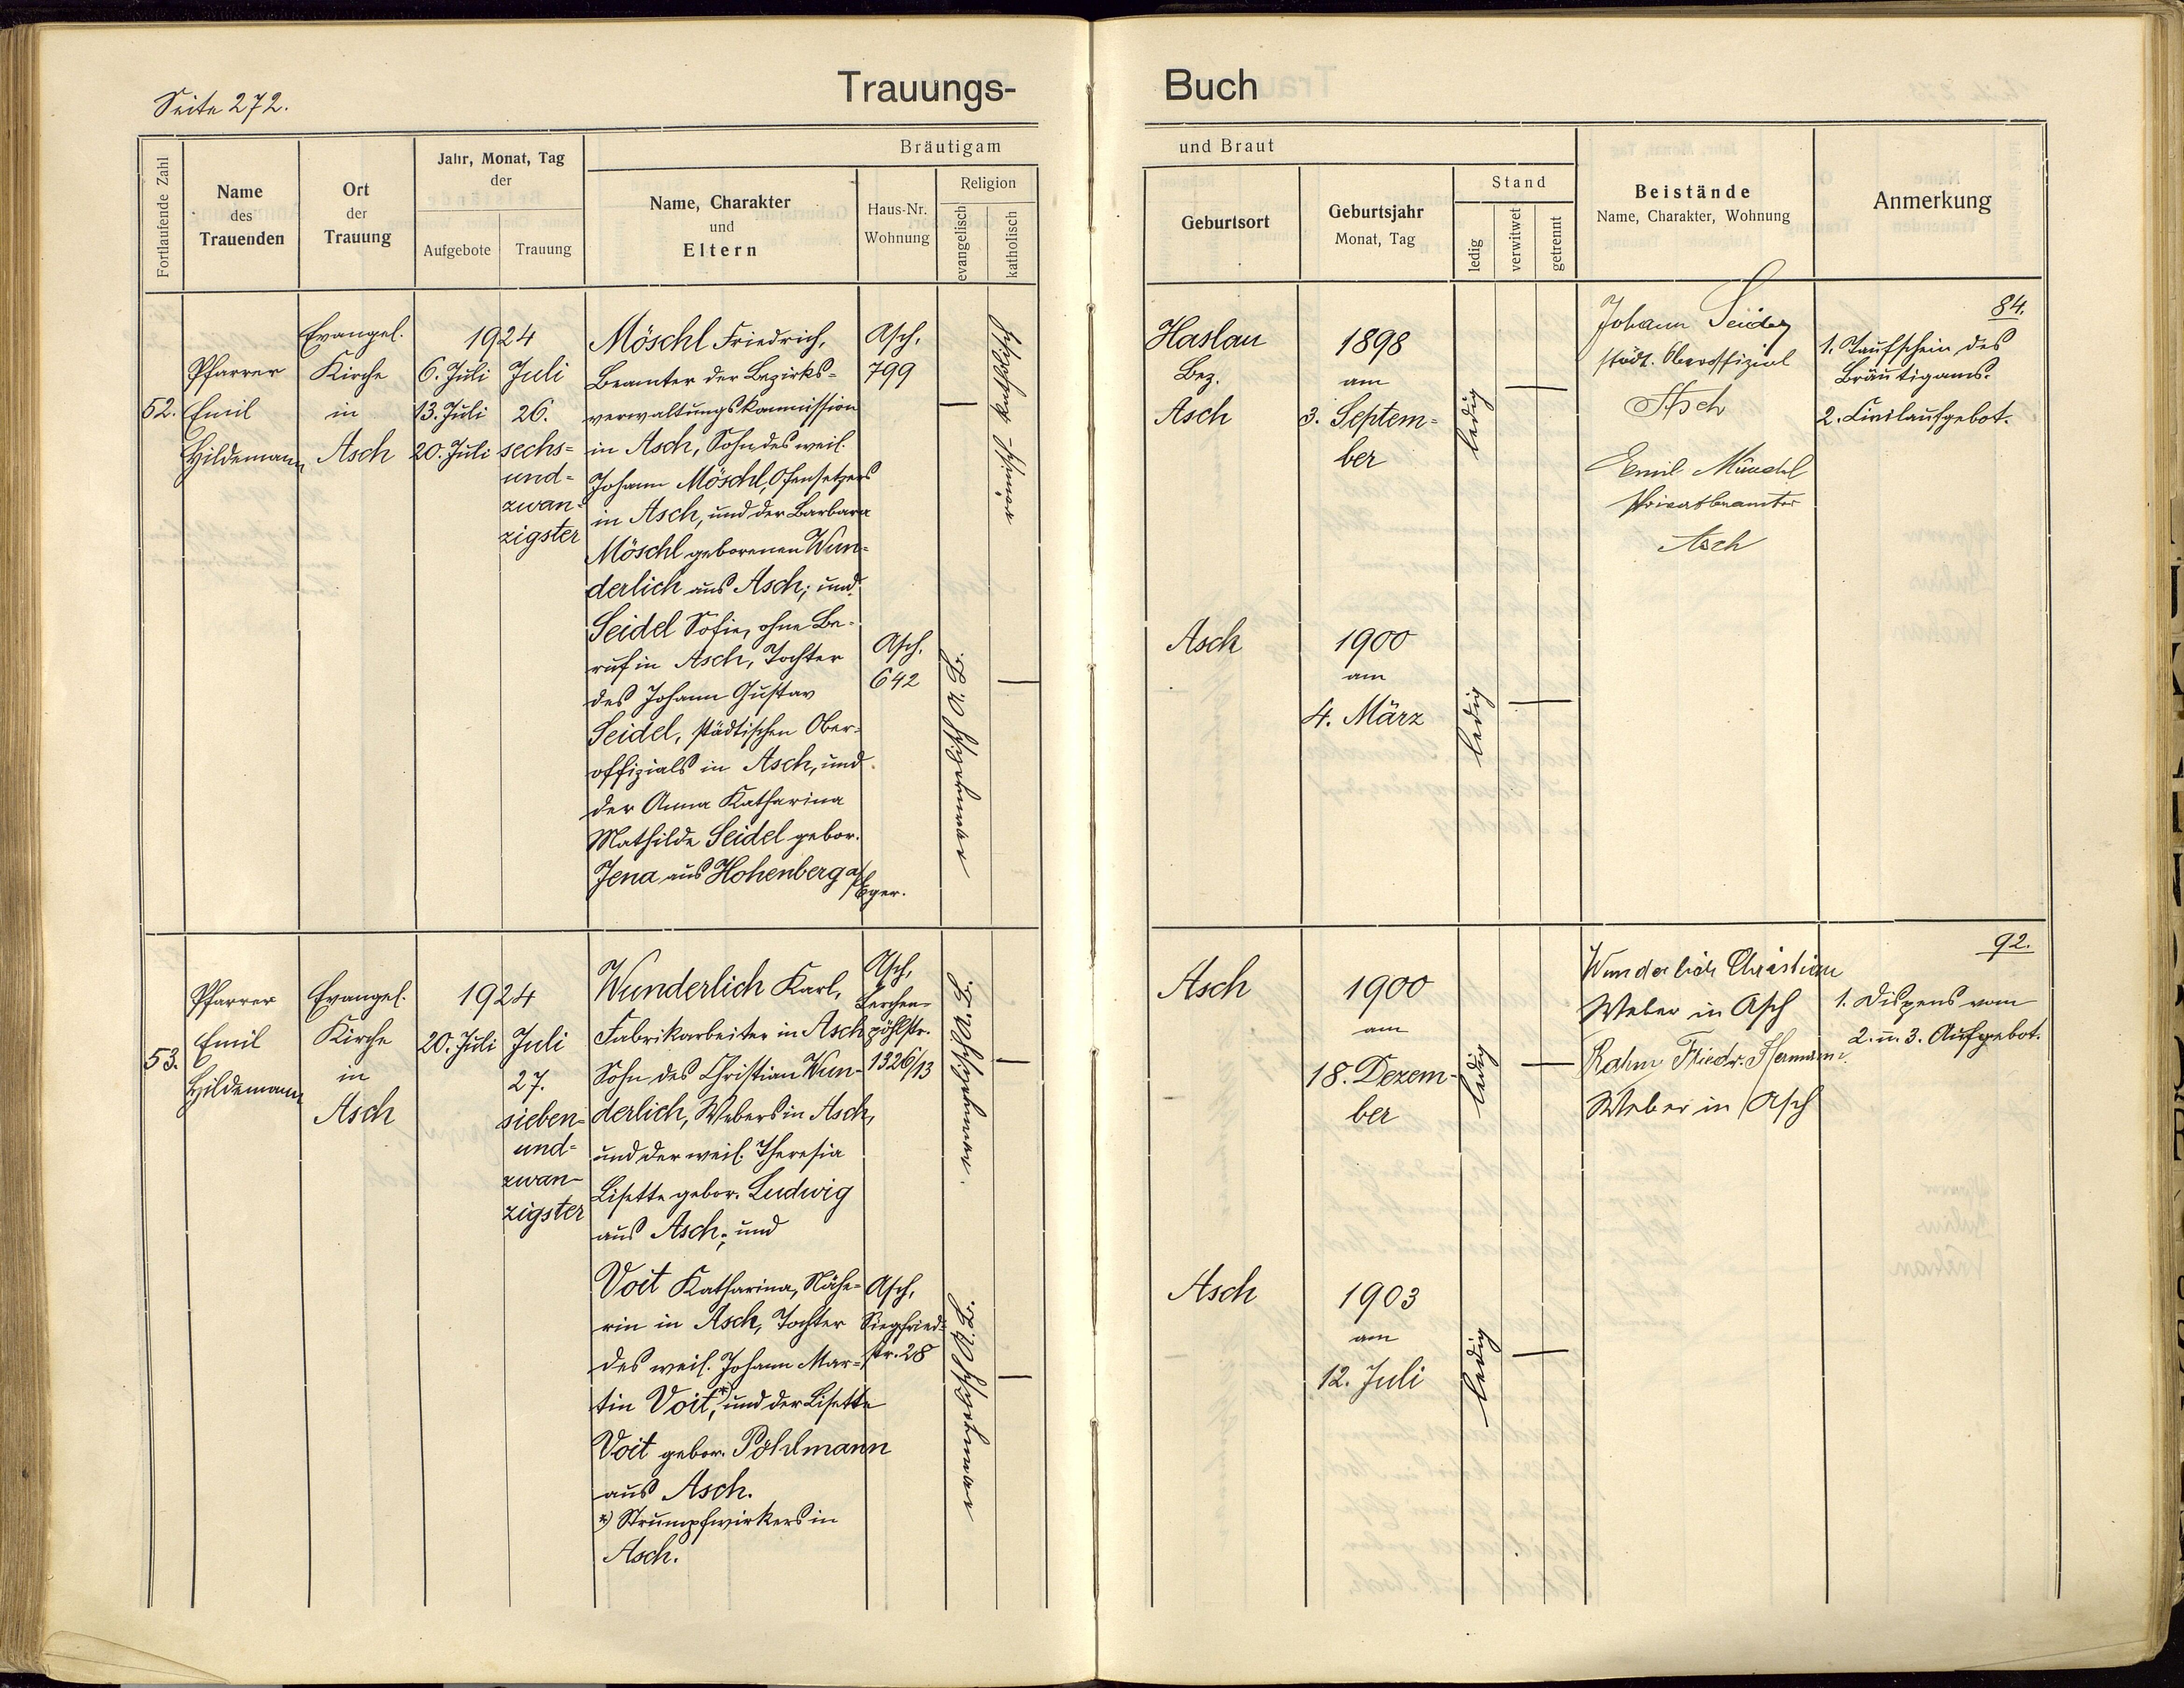 Seite 272.
Trauungs-
Buch
Fortlaufende Zahl
Name
des
Trauenden
Ort
der
Trauung
Jahr, Monat, Tag
der
Aufgebote
Trauung
Bräutigam
Name, Charakter
und
Eltern
Haus-Nr.
Wohnung
Religion
evangelisch
katholisch
und Braut
Geburtsort
Geburtsjahr
Monat, Tag
Stand
ledig
verwitwet
getrennt
Beistände
Name, Charakter, Wohnung
Anmerkung
52.
Pfarrer
Emil
Hildemann
Evangel.
Kirche
in
Asch
1924
6. Juli
13. Juli
20. Juli
Juli
26.
sechs=
und=
zwan=
zigster
Möschl Friedrich,
Beamter der Bezirks=
verwaltungskommission
in Asch, Sohn des weil.
Johann Möschl, Ofensetzers
in Asch, und der Barbara
Möschl geborenen Wun=
derlich aus Asch; und
Seidel Sofie, ohne Be=
ruf in Asch, Tochter
des Johann Gustav
Seidel, städtischen Ober=
offizials in Asch, und
der Anna Katharina
Mathilde Seidel gebor.
Jena aus Hohenberg a/Eger.
Asch,
799
Asch,
642
römisch-katholisch
evangelisch A.B.
Haslau
Bez.
Asch
1898
am
3. Septem=
ber
ledig
Asch
1900
am
4. März
ledig
Johann Seidel
städt. Oberoffizial
Asch
Emil Künzel
Privatbeamter
Asch
84.
1. Taufschein des
Bräutigams.
2. Civilaufgebot.
53.
Pfarrer
Emil
Hildemann
Evangel.
Kirche
in
Asch
1924
20. Juli
Juli
27.
sieben=
und=
zwan=
zigster
Wunderlich Karl,
Fabrikarbeiter in Asch
Sohn des Christian Wun=
derlich, Webers in Asch,
und der weil. Theresia
Lisette gebor. Ludwig
aus Asch; und
Voit Katharina, Nähe=
rin in Asch, Tochter
des weil. Johann Mar=
tin Voit,*) und der Lisette
Voit gebor. Pöhlmann
aus Asch.
*) Strumpfwirkers in
Asch.
Asch,
Lerchen=
pöhlstr.
1326/13
Asch,
Siegfried=
str. 28
evangelisch A.B.
evangelisch A.B.
Asch
1900
am
18. Dezem=
ber
ledig
Asch
1903
am
12. Juli
ledig
Wunderlich Christian
Weber in Asch
Rahm Friedr. Hermann
Weber in Asch
92.
1. Dispens vom
2. u. 3. Aufgebot.